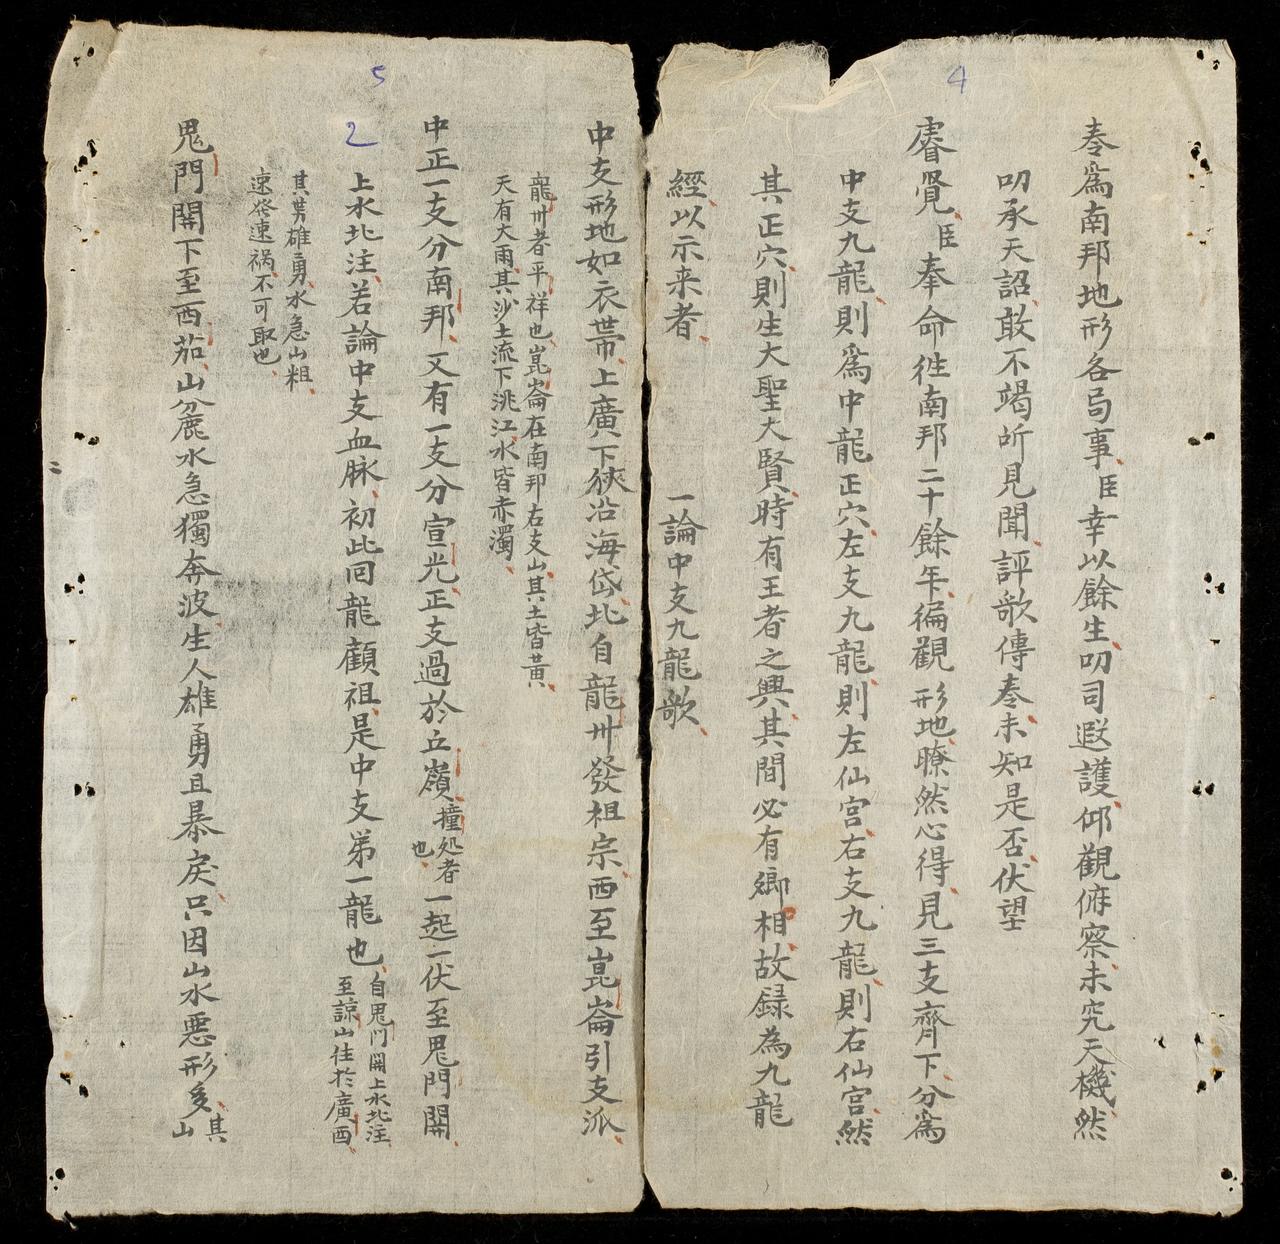 4
奏爲南邦地形各局事臣幸以餘生叨司遐護仰觀俯察未究天機然
叨承天詔敢不竭所見聞評歌傳奏未知是否伏望
睿覽臣奉命往南邦二十餘年徧觀形地瞭然心得見三支齊下分爲
中支九龍則爲中龍正穴左支九龍則左仙宮右支九龍則右仙宮然
其正穴則生大聖大賢時有王者之興其間必有卿相故録為九龍
經以示来者 一論中支九龍歌
5
中支形地如衣帶上廣下狹沿海岱北自龍卅發祖宗西至崑崙引支派
龍卅者平祥也崑崙在南邦右支山其土皆黄
天有大雨其沙土流下洮江水皆赤濁
中正一支分南邦又有一支分宣光正支過於丘嶺撞処者也一起一伏至鬼門開
2
上水北注若論中支血脉初此回龍顧祖是中支第一龍也自鬼門開上水北注至諒山住於廣西
其勢雄勇水急山粗
速發速禍不可取也
鬼門開下至西茄山麁水急獨奔波生人雄勇且暴戾只因山水悪形多其山